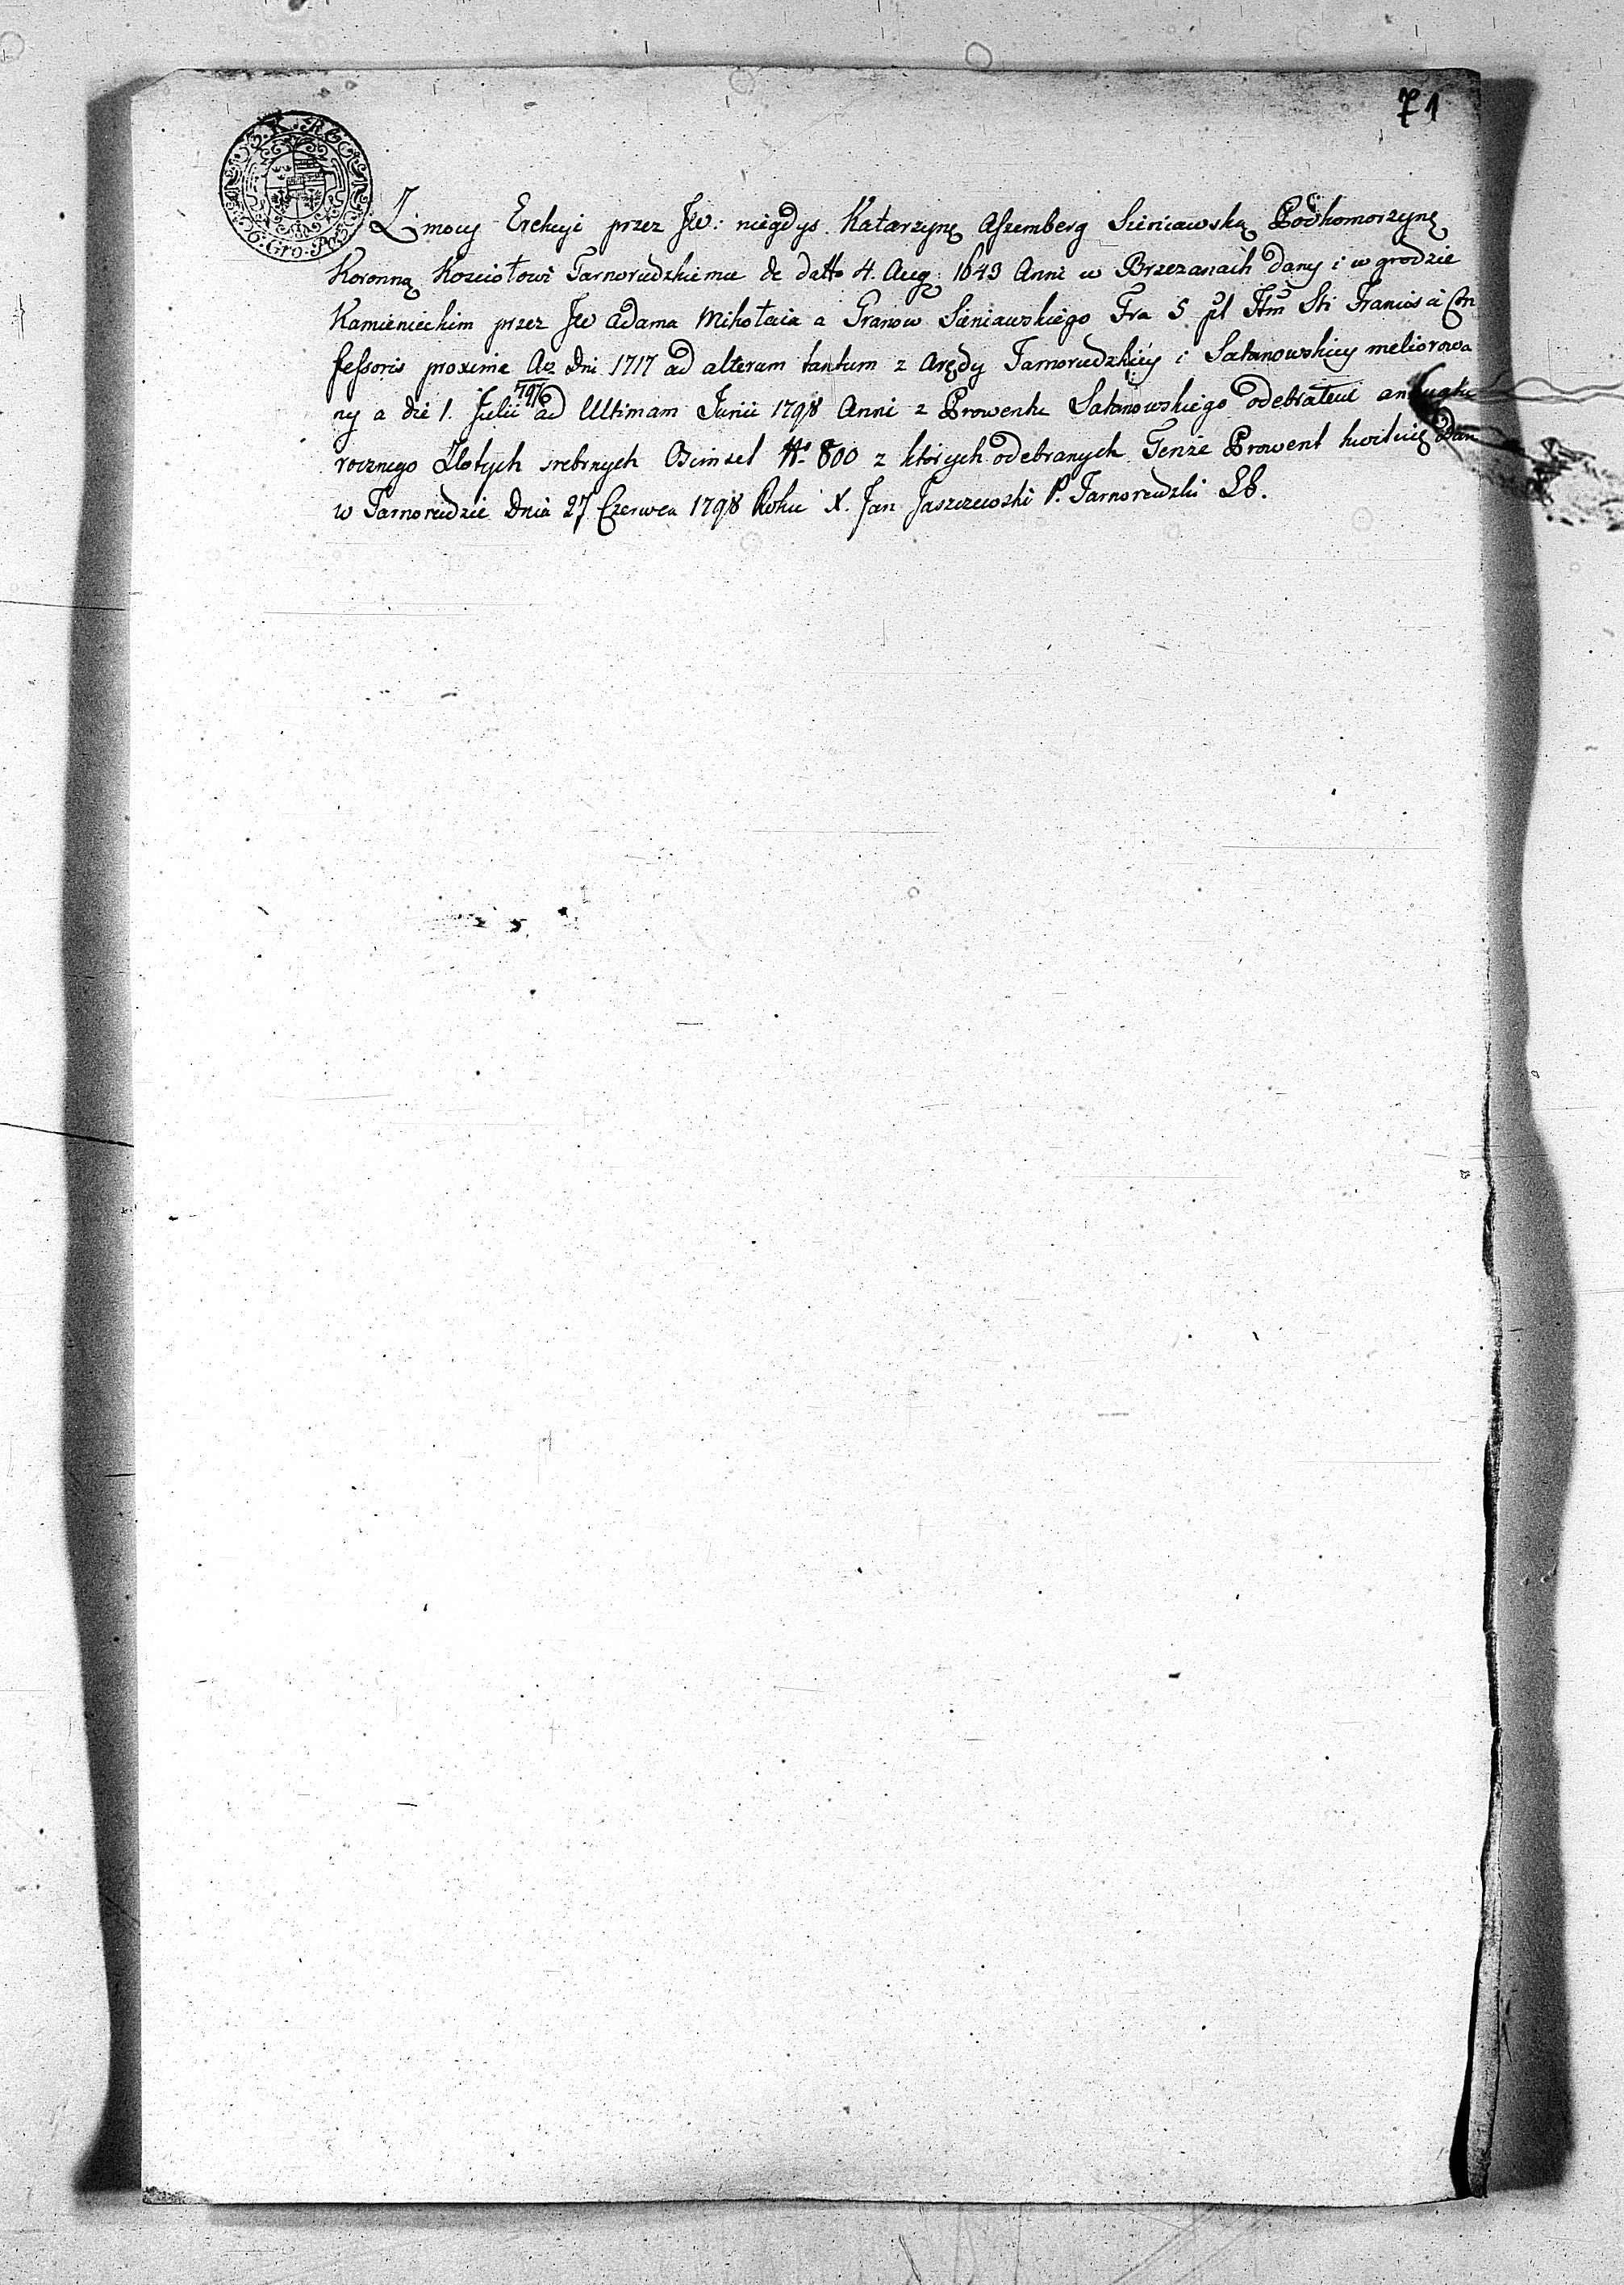 71
Z mocy Erekcyi przez JW: niegdys Katarzynę Aszemberg Sieniawską Podkomorzynę
Koronną Kosciołowi Tarnorudzkiemu de datto 4. Aug: 1643 Anni w Brzezanach dany i w grodzie
Kamienieckim przez JW Adama Mikołaia a Granow Sieniawskiego Fra 5 pt Ftm Sti Francisci Con
fessoris proxima Ao Dni 1717 ad alterum tantum z Arędy Tarnorudzkiey i Satanowskiey meliorowa
ny a die 1. Julii 797 ad Ultimam Junii 1798 Anni z Prowentu Satanowskiego odebrałem
rocznego Złotych srebrnych Osimset Nº 800 z ktorych odebranych Tenże Prowent kwituię Dan
w Tarnorudzie Dnia 27 Czerwca 1798 Roku X. Jan Jaszczewski P. Tarnorudzki